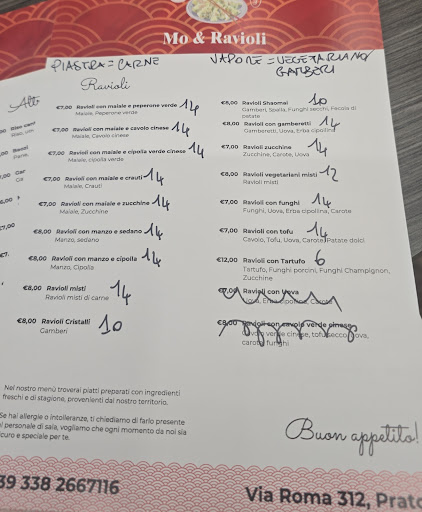 Mo & Ravioli
PIASTRA = CARNE
VAPORE = VEGETARIANO/
GAMBERI
Ravioli
Alt
€7,00 Ravioli con maiale e peperone verde 14
Maiale, Peperone verde
€7,00 Ravioli con maiale e cavolo cinese 14
Maiale, Cavolo cinese
€7,00 Ravioli con maiale e cipolla verde cinese 14
Maiale, cipolla verde
€7,00 Ravioli con maiale e crauti 14
Maiale, Crauti
€7,00 Ravioli con maiale e zucchine 14
Maiale, Zucchine
€8,00 Ravioli con manzo e sedano 14
Manzo, sedano
€8,00 Ravioli con manzo e cipolla 14
Manzo, Cipolla
€8,00 Ravioli misti 14
Ravioli misti di carne
€8,00 Ravioli Cristalli 10
Gamberi
€8,00 Ravioli Shaomai 10
Gamberi, Spalla, Funghi secchi, Fecola di
patate
€8,00 Ravioli con gamberetti 14
Gamberetti, Uova, Erba cipollina
€7,00 Ravioli zucchine 14
Zucchine, Carote, Uova
€8,00 Ravioli vegetariani misti 12
Ravioli misti
€7,00 Ravioli con funghi 14
Funghi, Uova, Erba cipollina, Carote
€7,00 Ravioli con tofu 14
Cavolo, Tofu, Uova, Carote, Patate dolci
€12,00 Ravioli con Tartufo 6
Tartufo, Funghi porcini, Funghi Champignon,
Zucchine
€7,00 Ravioli con Uova
Uova, Erba cipollina, Carote
€8,00 Ravioli con cavolo verde cinese
Cavolo verde cinese, tofu secco, uova,
carote, funghi
Nel nostro menù troverai piatti preparati con ingredienti
freschi e di stagione, provenienti dal nostro territorio.
Se hai allergie o intolleranze, ti chiediamo di farlo presente
al personale di sala, vogliamo che ogni momento da noi sia
sicuro e speciale per te.
Buon appetito!
39 338 2667116
Via Roma 312, Prato